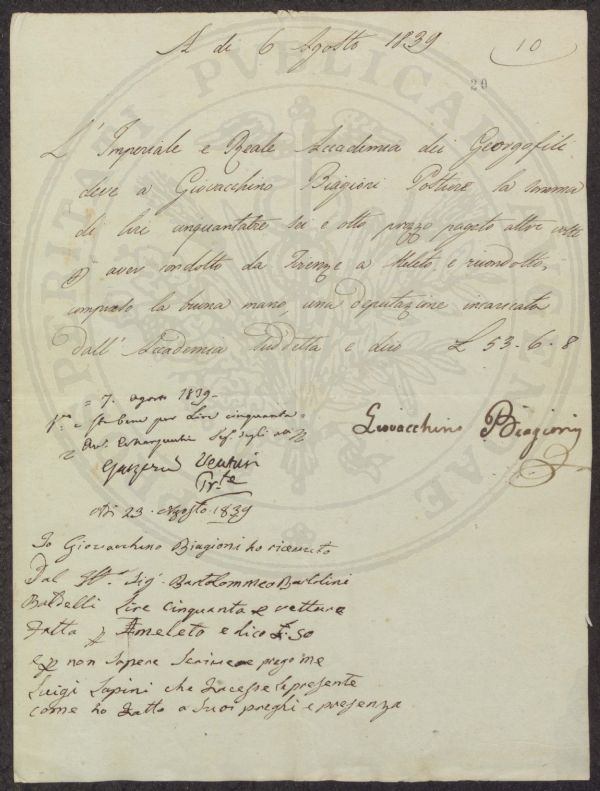 A di 6 Agosto 1839
10
20
L'Imperiale e Reale Accademia dei Georgofili
deve a Giovacchino Biagioni la somma
di lire cinquantatre sei e otto prezzo pagato altre volte
p aver condotto da Firenze a Meleto, e ricondotto,
compreso la buona mano, una deputazione incaricata
dall'Accademia suddetta e dico L 53-6-8
Giovacchino Biagioni
= 7. agosto 1839 -
sta bene per Lire cinquanta =
Segr. degli atti
Venturi
Adi 23. Agosto 1839
Io Giovacchino Biagioni ho ricevuto
Dal Sig. Bartolommeo Bartolini
Baldelli Lire cinquanta e vetture
Fatta p Ameleto e dico £ 50
e p non sapere scrivere prego me
Luigi Lapini che facesse la presente
come ho Fatto a suoi preghi e presenza
PUBLICAE